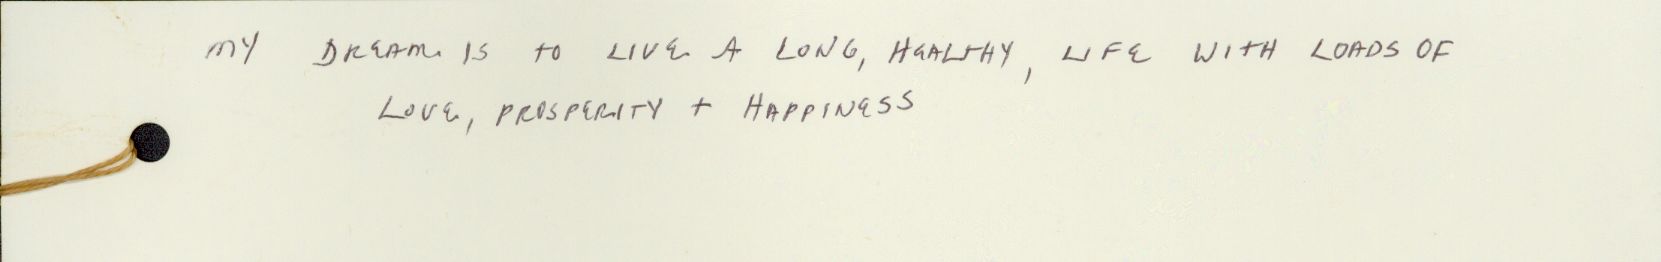 MY DREAM IS TO LIVE A LONG, HEALTHY, LIFE WITH LOADS OF
LOVE, PROSPERITY + HAPPINESS